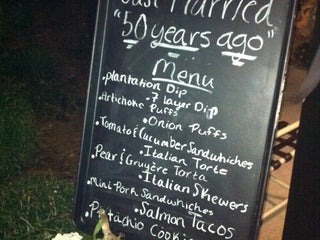 Just Married
"50 years ago"
Menu
•Plantation Dip
•7 layer Dip
•Artichoke Puffs
•Onion Puffs
•Tomato & Cucumber Sandwhiches
•Italian Torte
•Pear & Gruyère Torta
•Italian Skewers
•Mini Pork Sandwhiches
•Salmon Tacos
•Pistachio Cookie